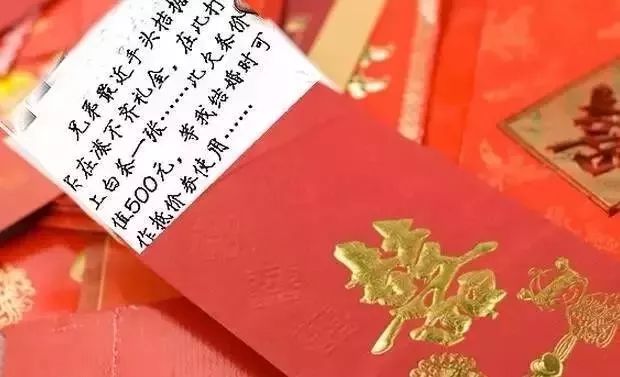 兄弟最近手头拮据
实在凑不齐礼金，在此打
上白条一张……此欠条价
值500元，等我结婚时可
作抵价券使用……